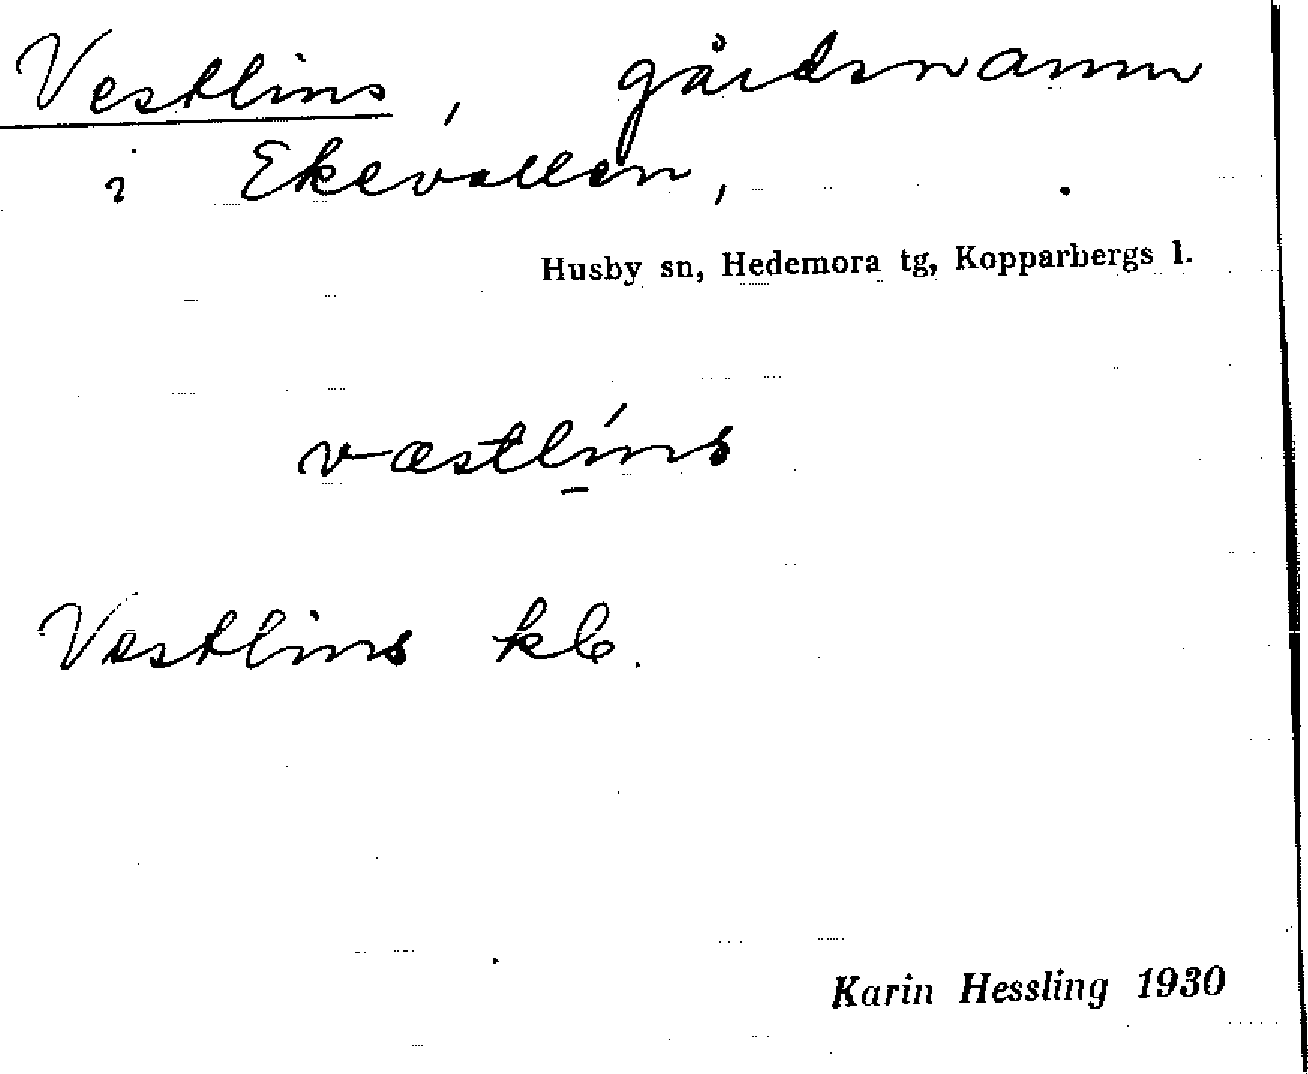 Vestlins, gårdsnamn
i Ekevallen,
Husby sn, Hedemora tg, Kopparbergs l.
væstlins
Vestlins klb.
Karin Hessling 1930